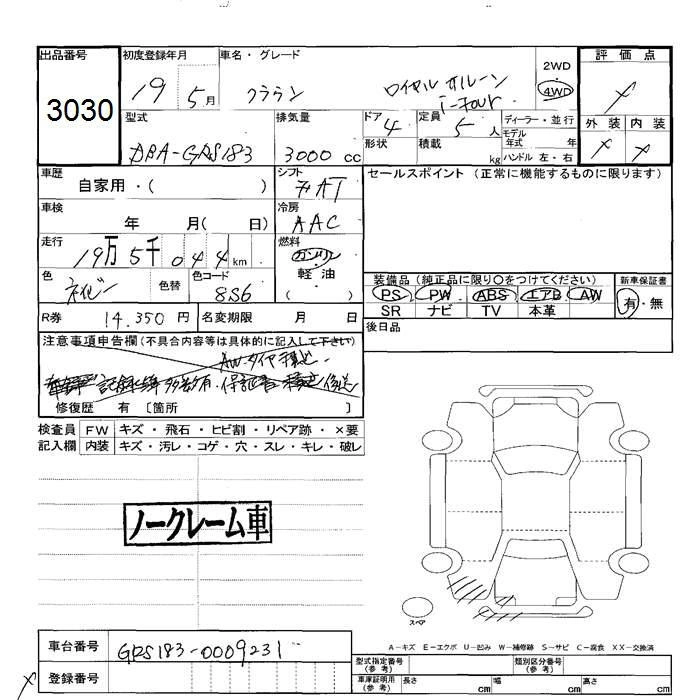 出品番号
初度登録年月
車名・グレード
評価点
3030
19 5月
クラウン
ロイヤルサルーン
i-Four
2WD
4WD
×
型式
排気量
ドア
定員
ディーラー・並行
外装 内装
DBA-GRS183
3000 cc
4
5人
モデル年式 年
× ×
形状
積載 kg
ハンドル 左・右
車歴
自家用・( )
シフト
AT
セールスポイント(正常に機能するものに限ります)
車検
年 月( 日)
冷房
AAC
走行
19万5千044km
燃料
ガソリン
軽油
( )
色
ネイビー
色替
色コード
8S6
装備品(純正品に限り〇をつけてください)
新車保証書
PS PW ABS エアB AW
SR ナビ TV 本革
有・無
R券 14.350円
名変期限 月 日
後日品
注意事項申告欄(不具合内容等は具体的に記入して下さい)
AW・タイヤ積込
修復歴 有 〔箇所 〕
検査員
記入欄
FW キズ・飛石・ヒビ割・リペア跡・×要
内装 キズ・汚レ・コゲ・穴・スレ・キレ・破レ
ノークレーム車
スペア
A-キズ E-エクボ U-凹み W-補修跡 S-サビ C-腐食 XX-交換済
車台番号
GRS183-0009231
登録番号
×
型式指定番号(参考)
類別区分番号(参考)
車庫証明用(参考)
長さ cm 幅 cm 高さ cm